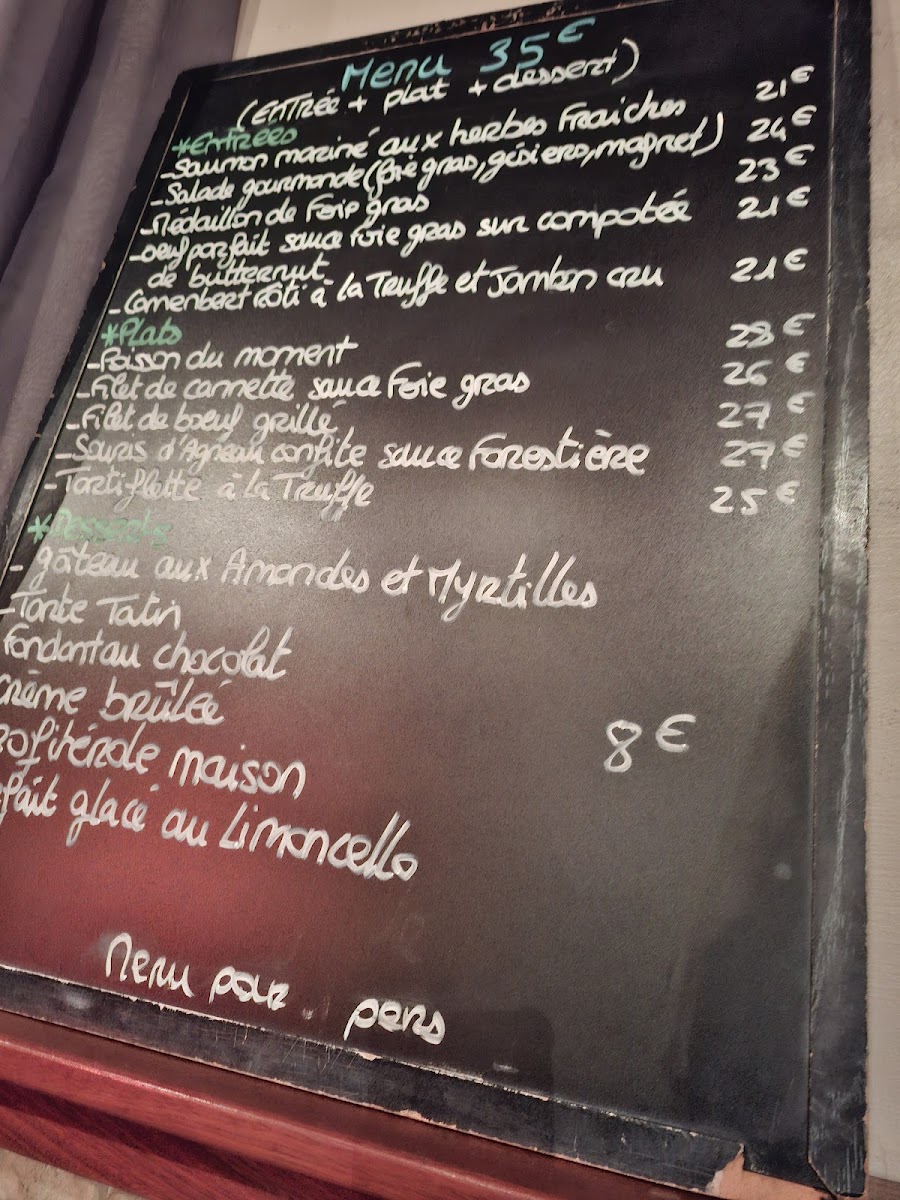 Menu 35€
(ENTRÉE + plat + dessert)
*ENTRÉES
-Saumon mariné aux herbes Fraiches 21€
-Salade gourmande (foie gras, gésiers, magret) 24€
-Médaillon de Foie gras 23€
-oeuf parfait sauce foie gras sur compotée 21€
de butternut
-Camenbert rôti à la Truffe et Jambon cru 21€
*Plats
-Poisson du moment 28€
-Filet de cannette sauce Foie gras 26€
-Filet de boeuf grillé 27€
-Souris d'Agneau confite sauce Forestière 27€
-Tartiflette à la Truffe 25€
*Desserts
- gâteau aux Amandes et Myrtilles
-Tarte Tatin
Fondant au chocolat
Crème brûlée
ofitérole maison 8€
fait glacé au Limoncello
Menu pour pers